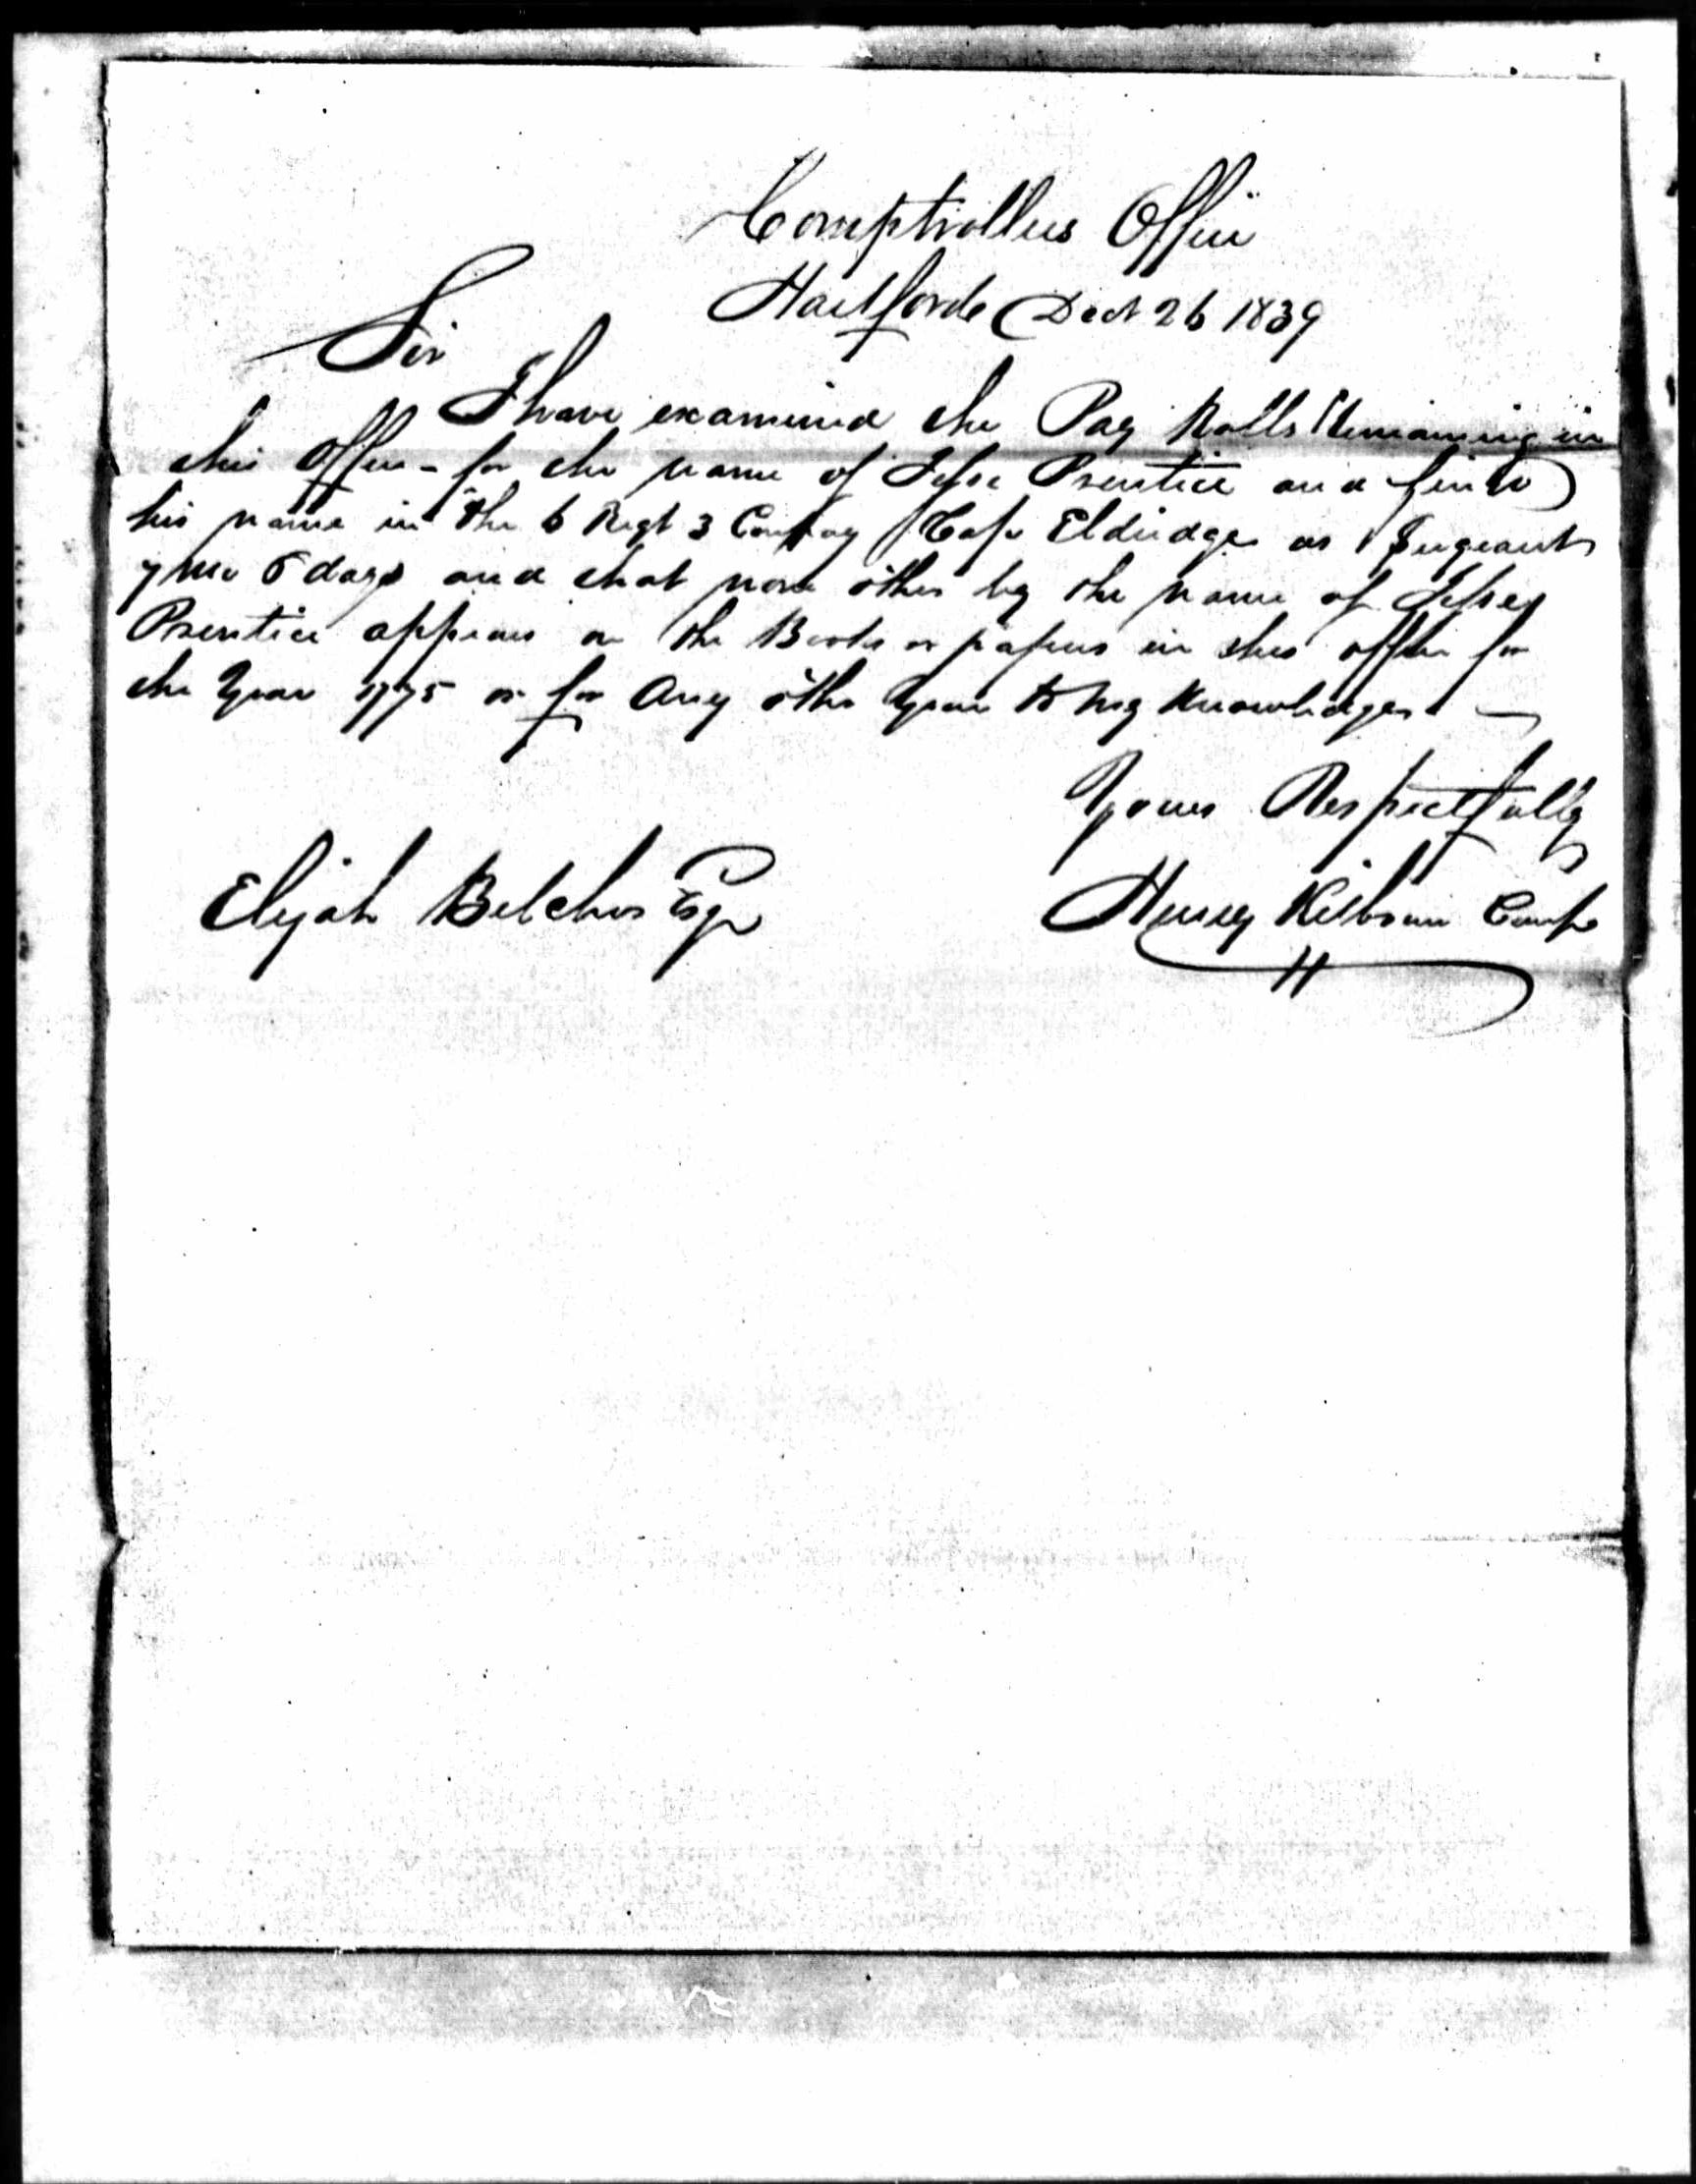 Comptrollers Office
Hartford Dect 26 1839
Sir
I have examined the Pay Rolls Remaining in
this Office - for the name of Jesse Prentice and find
his name in the 6 Regt 3 Company Capt Eldridge as Sergeant
7 Mo 6 days and that none other by the name of Jesse
Prentice appears on the Books or papers in this office for
the Year 1775 or for Any other Year to my Knowledge —
Yours Respectfully
Elijah Belcher Esqr
Henry Kilbourn Comp